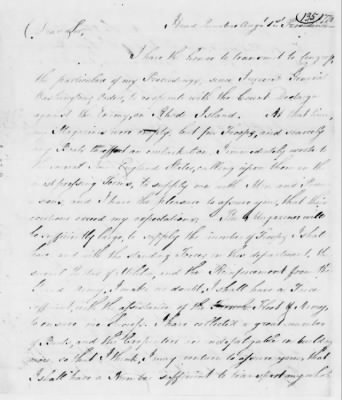 135
Head Quarters Augt 1st Providence
Dear Sir,
I have the honor to transmit to Congress
the particulars of my Proceedings, since I received General
Washingtons Order, to cooperate with the Count D'Estaing
against the Enemy, on Rhode Island. At that time,
my Magazines were empty, but few Troops, and scarcely
any Boats to effect an embarkation. I immediately wrote to
the several New England States, calling upon them in the
most pressing Terms, to supply me with Men and Provi-
sions, and I have the pleasure to assure you, that their
exertions exceed my expectations. The Magazines will
be sufficiently large, to supply the number of Troops I shall
have, and with the standing Forces in this department, the
several Quotas of Militia, and the Reinforcement from the
Grand Army, I make no doubt, I shall have a Force
sufficient, with the assistance of the French Fleet & Army,
to ensure me Success. I have collected a great number
of Boats, and the Carpenters are indefatigable in building
more, so that I think, I may venture to assure you, that
I shall have a Number sufficient to transport my whole